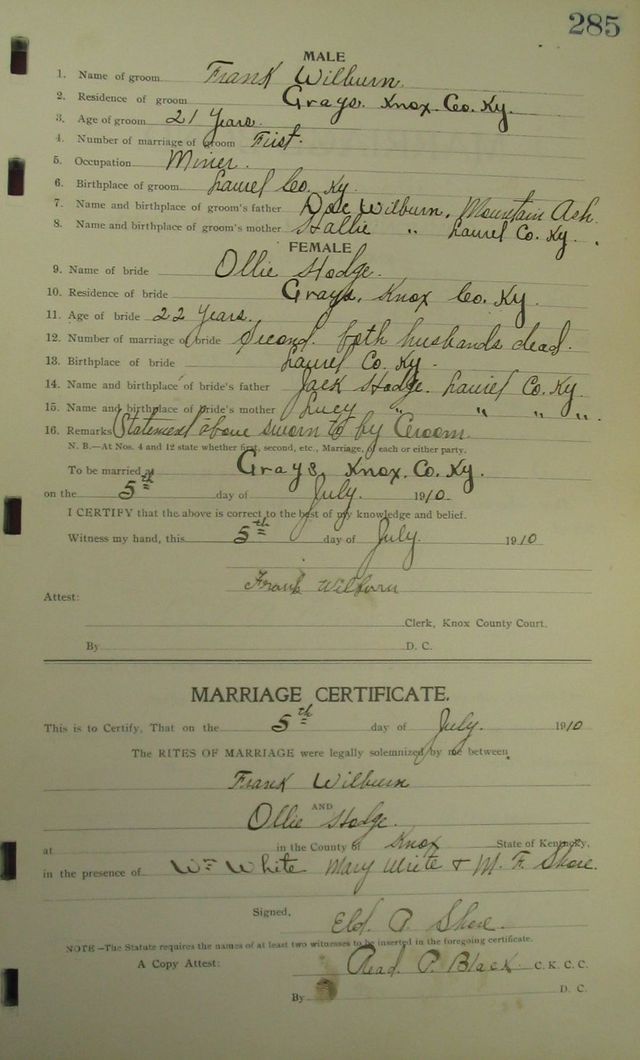 285
MALE
1. Name of groom Frank Wilburn
2. Residence of groom Grays. Knox. Co. Ky.
3. Age of groom 21 Years.
4. Number of marriage of groom First.
5. Occupation Miner.
6. Birthplace of groom Laurel Co. Ky
7. Name and birthplace of groom's father Wilburn, Mountain Ash.
8. Name and birthplace of groom's mother Hallie " Laurel Co. Ky.
FEMALE
9. Name of bride Ollie Hodge.
10. Residence of bride Grays, Knox Co. Ky.
11. Age of bride 22 Years.
12. Number of marriage of bride Second. both husbands dead.
13. Birthplace of bride Laurel Co. Ky.
14. Name and birthplace of bride's father Jack Hodge. Laurel Co. Ky.
15. Name and birthplace of bride's mother Lucy " " " "
16. Remarks Statement above sworn to by Groom.
N. B.—At Nos. 4 and 12 state whether first, second, etc., Marriage, of each or either party.
To be married at Grays, Knox. Co. Ky.
on the 5th day of July. 1910.
I CERTIFY that the above is correct to the best of my knowledge and belief.
Witness my hand, this 5th day of July. 1910
Frank Wilburn
Attest:
Clerk, Knox County Court.
By D. C.
MARRIAGE CERTIFICATE.
This is to Certify, That on the 5th day of July. 1910
The RITES OF MARRIAGE were legally solemnized by me between
Frank Wilburn
AND
Ollie Hodge.
at in the County of Knox State of Kentucky,
in the presence of Wm White Mary White & M. F. Shore.
Signed, Eld. P. Shore.
NOTE—The Statute requires the names of at least two witnesses to be inserted in the foregoing certificate.
A Copy Attest: Read P. Black C. K. C. C.
By D. C.